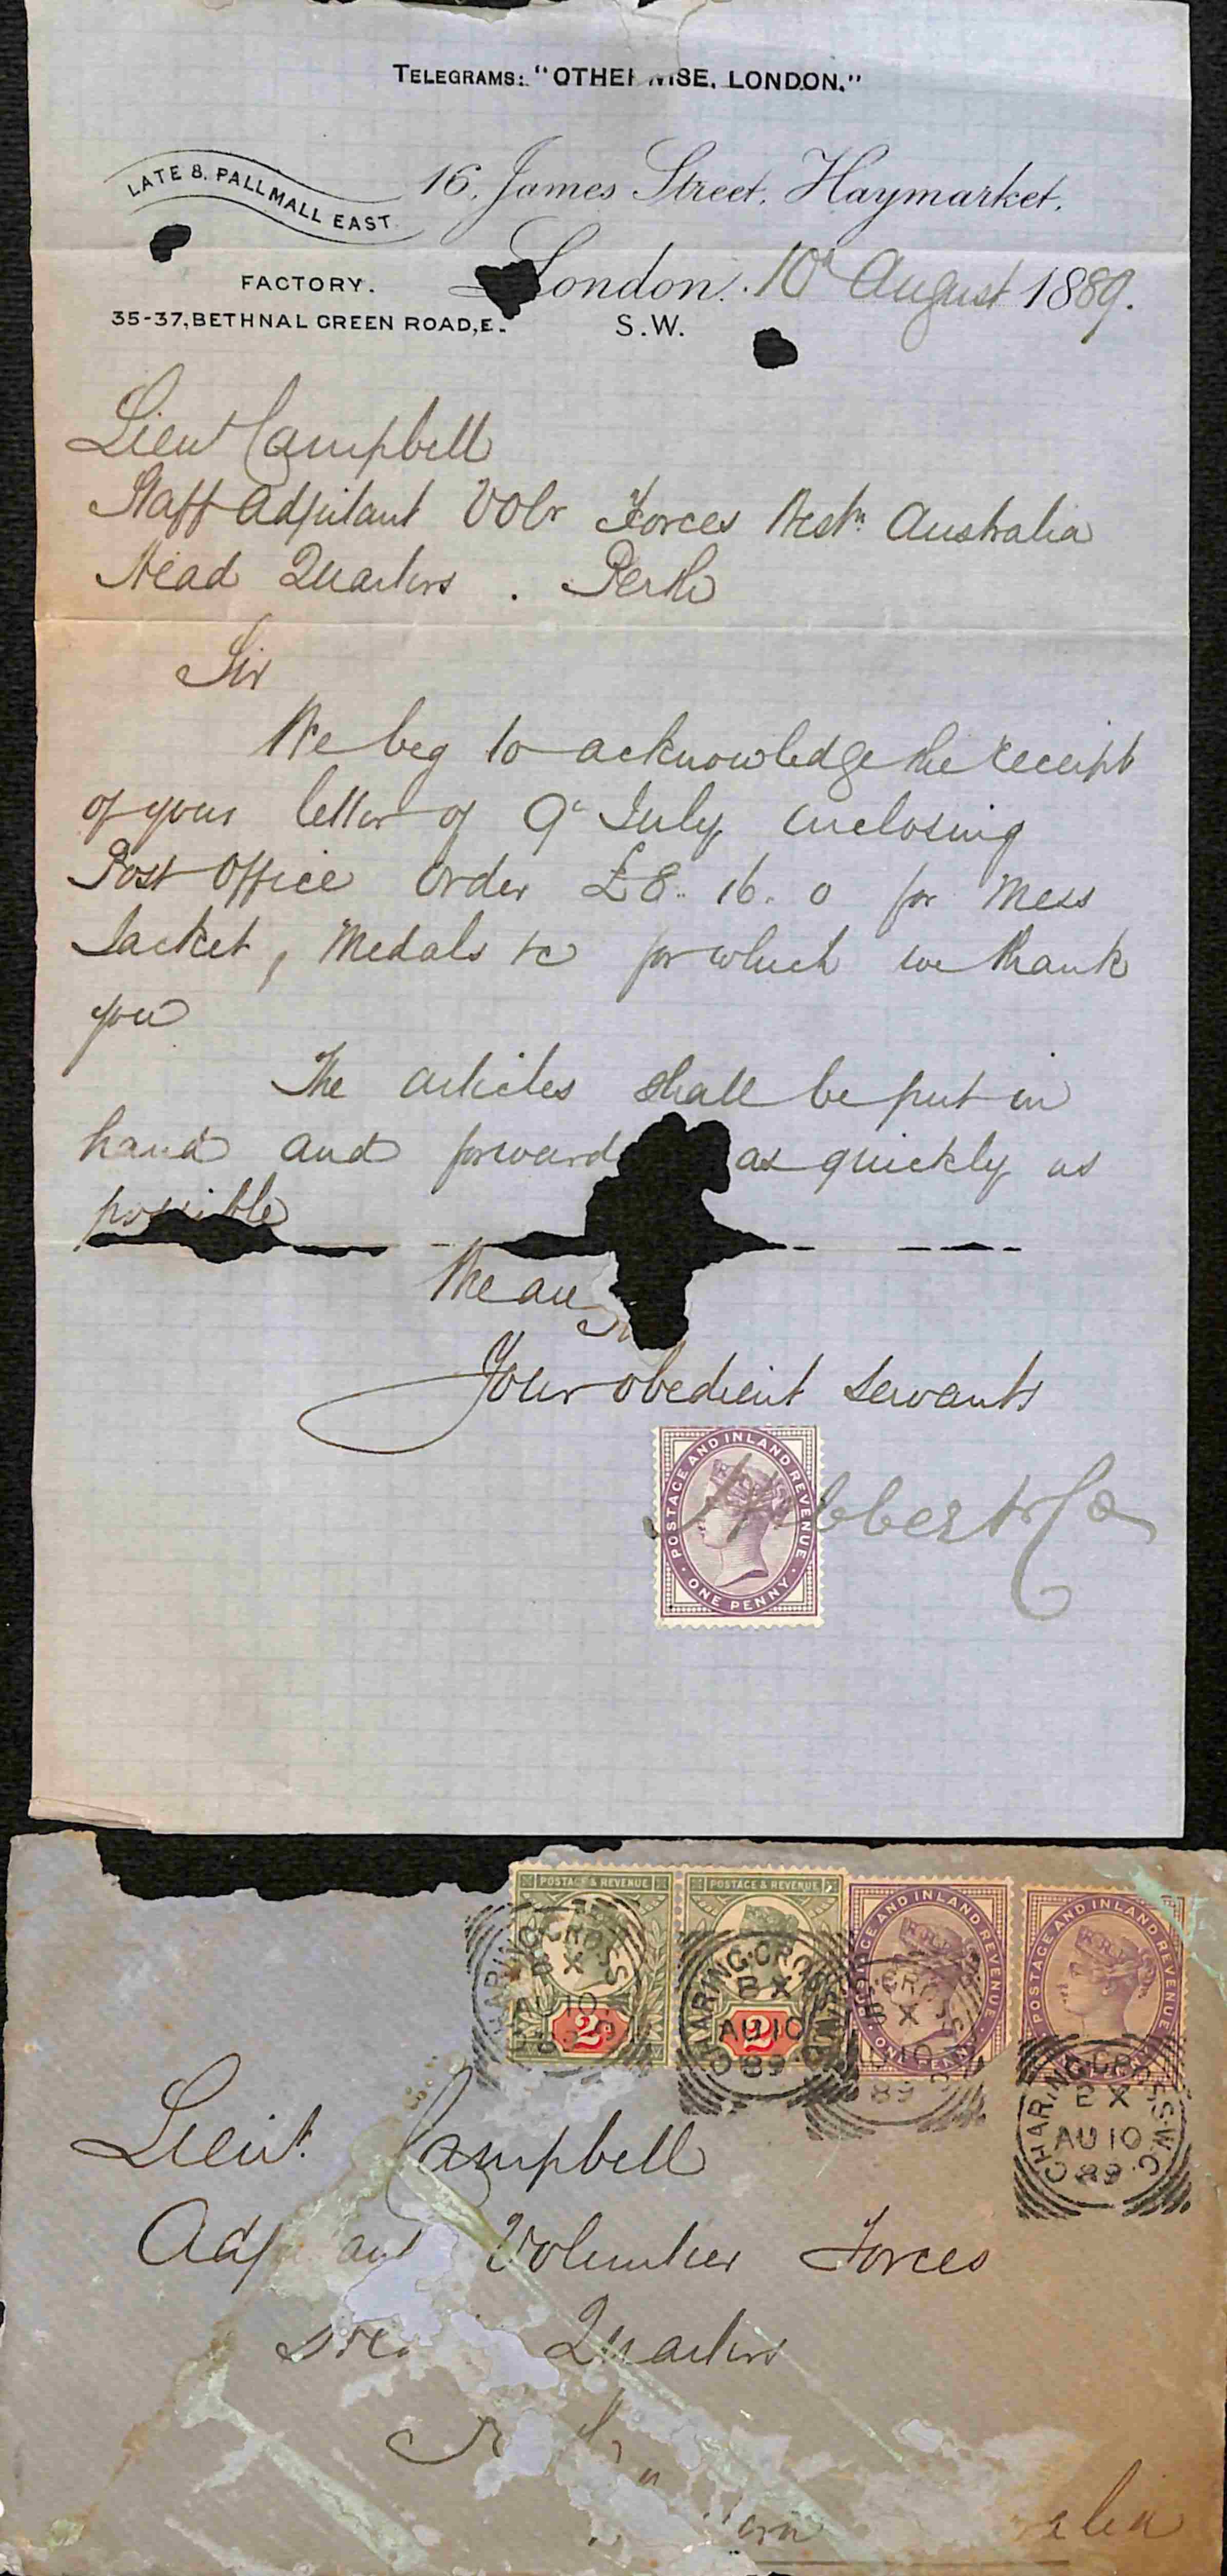 TELEGRAMS: "OTHERWISE, LONDON."
LATE 8. PALL MALL EAST.
16, James Street, Haymarket,
FACTORY.
35-37, BETHNAL GREEN ROAD, E.
London. 10th August 1889.
S.W.
Lieut Campbell
Staff Adjutant Volr Forces Westn Australia
Head Quarters . Perth
Sir
We beg to acknowledge the receipt
of your letter of 9th July enclosing
Post Office Order £8.. 16. 0 for Mess
Jacket, Medals &c for which we thank
you
The articles shall be put in
hand and forward as quickly as
possible
We are
Your obedient Servants
Hibbert & Co
POSTAGE AND INLAND REVENUE
ONE PENNY
POSTAGE & REVENUE
POSTAGE & REVENUE
POSTAGE AND INLAND REVENUE
POSTAGE AND INLAND REVENUE
2d
2
CHARING CROSS
BX
AU 10
89
CHARING CROSS
BX
AU 10
89
CROSS
BX
AU 10
89
CHARING CROSS.W.C.
BX
AU 10
89
Lieut. Campbell
Adj ant Volunteer Forces
Quarters
ern alia